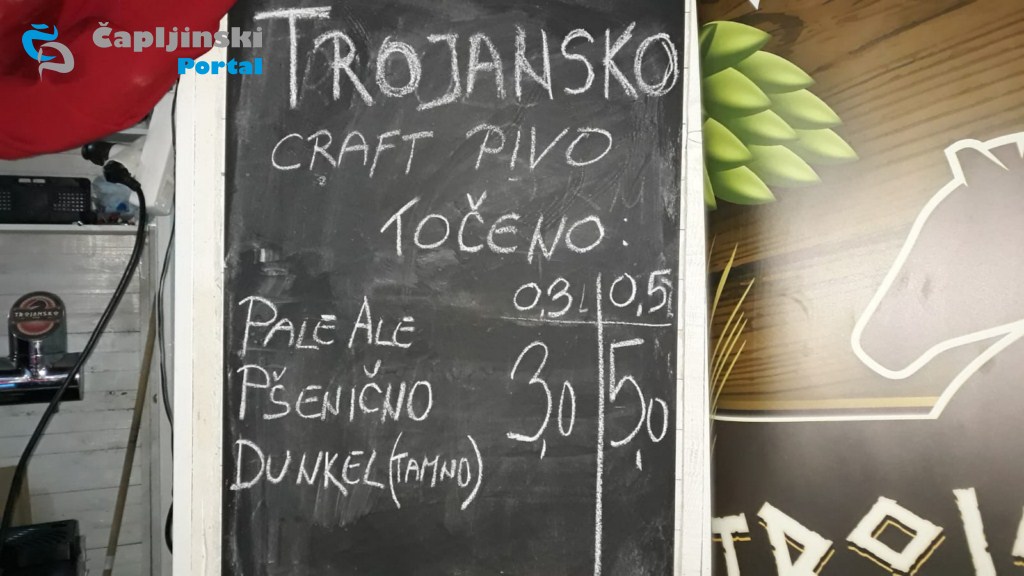 Čapljinski
Portal
TROJANSKO
CRAFT PIVO
TOČENO:
0,3L 0,5L
PALE ALE
PŠENIČNO 3,0 5,0
DUNKEL (TAMNO)
TROJANSKO
TROJ